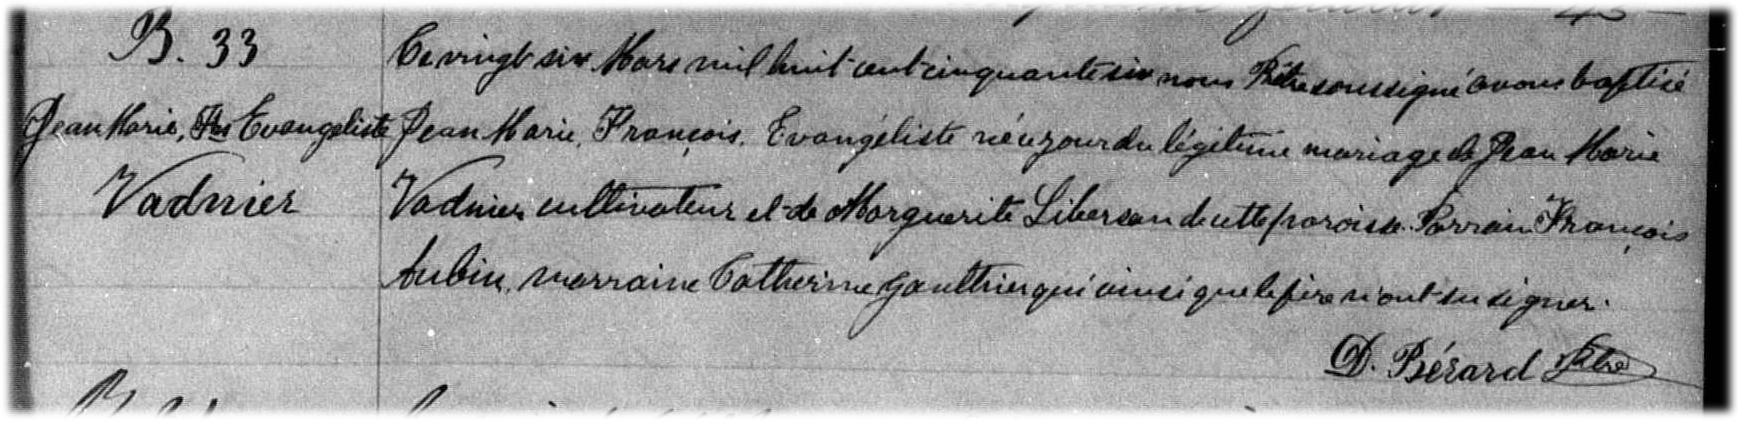 B. 33
Jean Marie, Frs Evangeliste
Vadnier
Ce vingt six Mars mil huit cent cinquante six nous Prêtre soussigné avons baptisé
Jean Marie, François, Evangéliste né ce jour du légitime mariage de Jean Marie
Vadnier cultivateur et de Marguerite Liberson de cette paroisse. Parrain François
Aubin, marraine Catherine Gaulthier qui ainsi que le père n'ont su signer.
D. Bérard Ptre